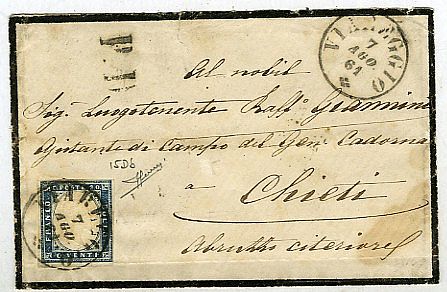 P.D
VIAREGGIO
7
AGO.
61
Al nobil
Sig. Luogotenente Raff. Giannini
Ajutante di Campo del Gen. Cadorna
a
15D6
Chieti
Abruzzo citeriore
FRANCO
POSTE
C. VENTI
7
AGO